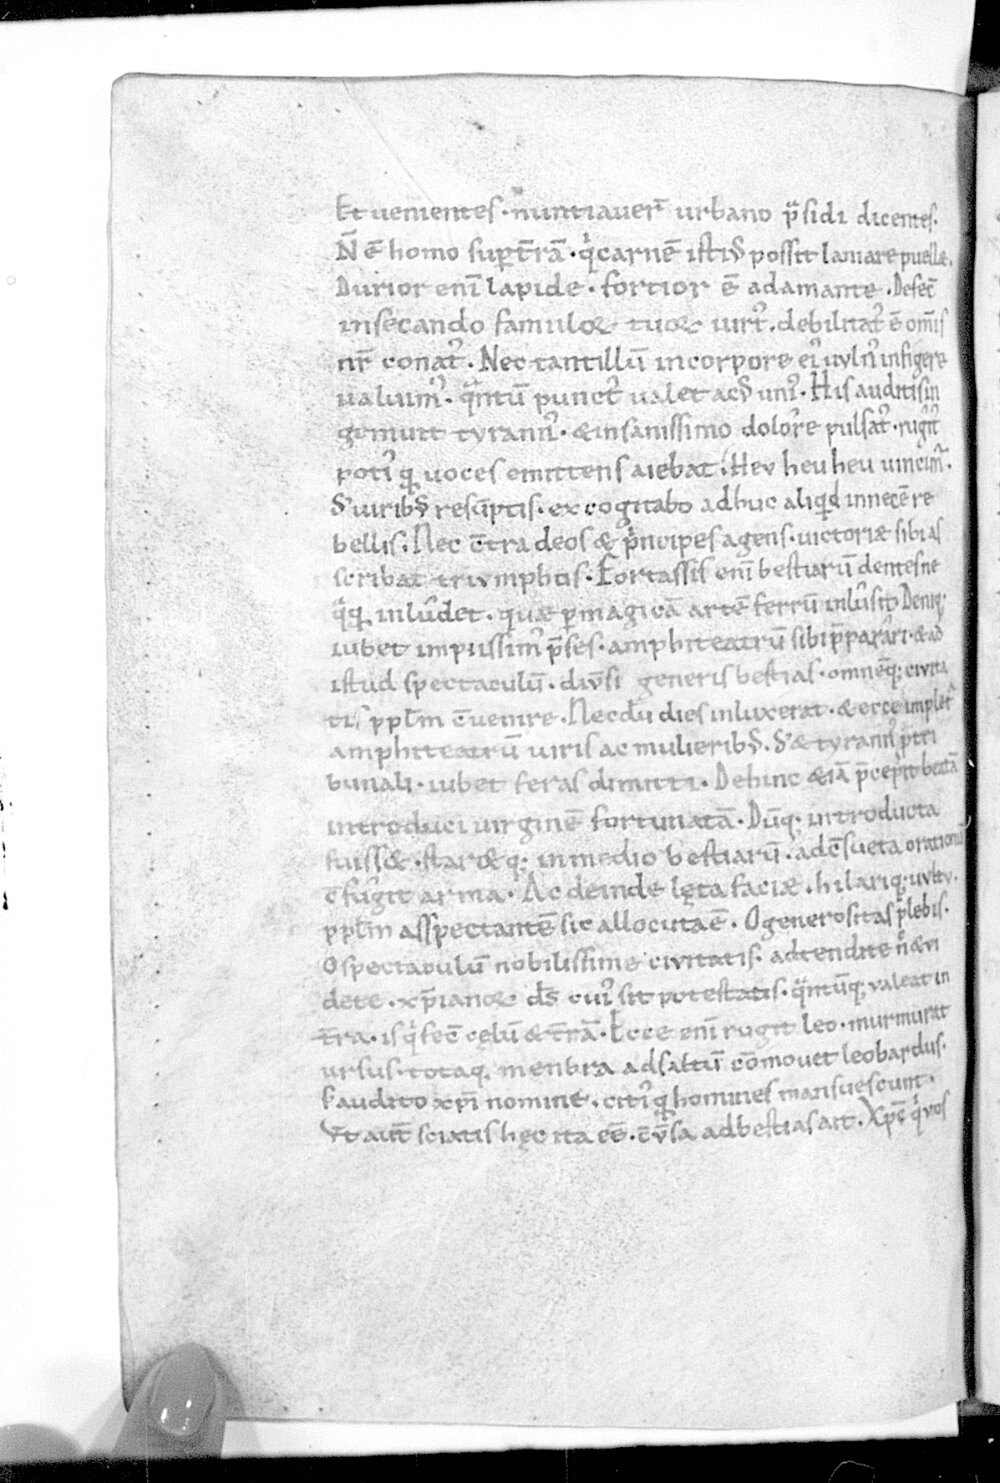 Et uenientes · nuntiauer̄ urbano p̄sidi dicentes.
N̄ ē homo sup t̄rā · qͥ carnē istiꝰ possit laniare puellæ.
Durior eni̅ lapide · fortior ē adamante · Defec̄
in secando famuloꝝ tuoꝝ uirtꝰ. debilitatꝰ ē om̄is
nr̄ conatꝰ. Nec tantillū in corpore eiꝰ uulnꝰ infigere
ualuimꝰ. qͣntū punctꝰ ualet acꝰ uniꝰ. His auditis in
gemuit tyrannꝰ. & insanissimo dolore pulsatꝰ. rugitꝰ
potiꝰ qͣ uoces emittens aiebat. Heu heu heu uincimͬ.
S; uiribꝰ resūptis. excogitabo adhuc aliqͥd innecēre
bellis. Nec c̄tra deos & pͥncipes agens. uictoriæ sibi as
scribat triumphos. Fortassis eni̅ bestiarū dentes ne
qͣq inludet. quæ p magicā artē ferrū inlusit. Deniq;
iubet impiissimꝰ p̄ses. amphiteatrū sibi p̄parari. & ad
istud spectaculū. diūsi generis bestias. omnēq; ciuita
tis ppl̄m c̄uenire. Necdū dies inluxerat. & ecce impletͬ
amphiteatrū uiris ac mulieribꝰ. S; & tyrannꝰ p̄ tri
bunali. iubet feras dimitti. Dehinc &iā p̄cepit beatā
introduci uirginē fortunatā. Dūq; introducta
fuiss&. star&q; in medio bestiarū. ad c̄sueta orationū
c̄fugit arma. Ac deinde lęta faciæ. hilariq; uultu.
ppl̄m asspectantē sic allocuta ē. O generositas plebis.
O spectaculū nobilissime ciuitatis. adtendite &ui
dete. xp̄ianoꝝ dꝰs cuiꝰ sit potestatis. qͣntūq; ualeat in
t̄ra. is qͥ fec̄ cęlū & t̄rā. Ecce eni̅ rugit leo. murmurat
ursus. totaq; menbra ad saltū cōmouet leobardus.
S; audito xp̄i nomine. citiꝰ qͣ homines mansuescunt.
Vt aut̄ sciatis hęc ita eē. c̄ūsa ad bestias ait. Xp̄c qͥ uos